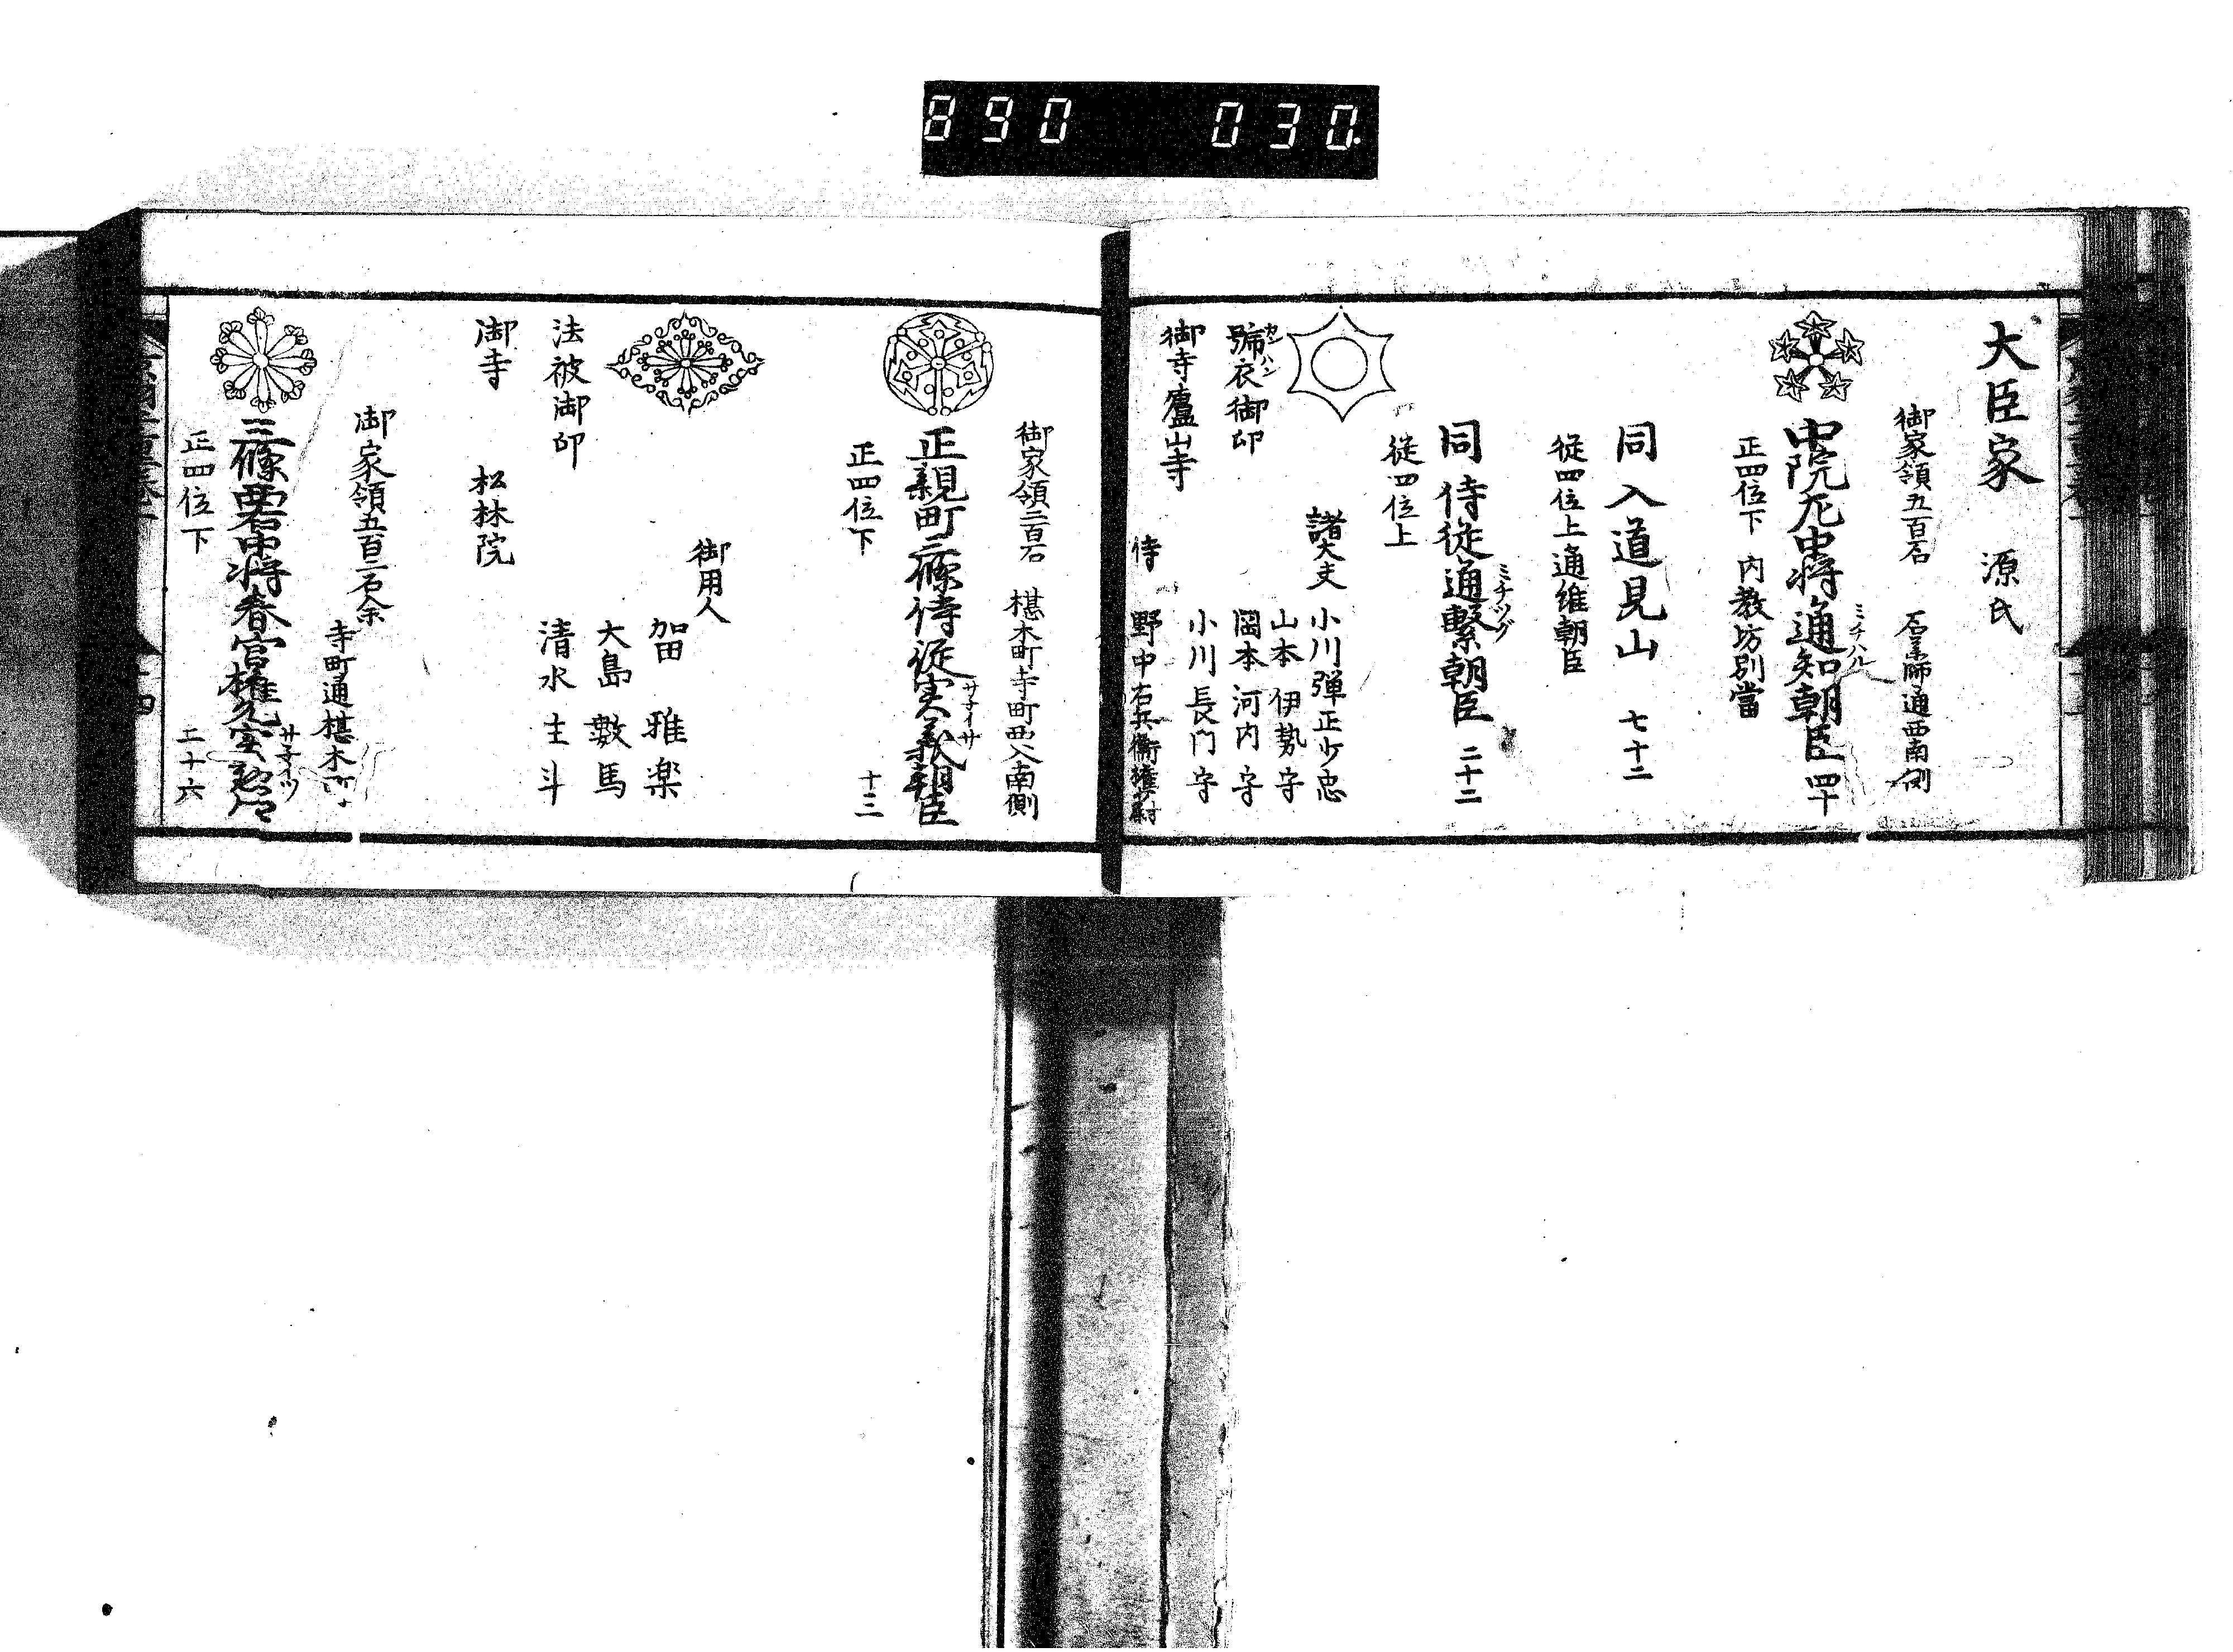 890 030
大臣家 源氏
御家領五百石 石薬師通西南側
中院左中将通知朝臣 四十
ミチハル
正四位下 内教坊別當
同入道見山 七十二
従四位上通維朝臣
同侍従通繫朝臣 二十二
ミチツグ
従四位上
諸大夫 小川弾正少忠
山本伊勢守
號衣御印 岡本河内守
カンハン
小川長門守
御寺廬山寺
侍 野中右兵衛権少尉
御家領三百石 椹木町寺町西入南側
正親町三條侍従実義朝臣
十三
正四位下
御用人
加田雅楽
大島數馬
法被御印 清水主斗
御寺 松林院
御家領五百二石余
寺町通椹木
三條西右中将春宮権亮実勲朝臣
正四位下 二十六